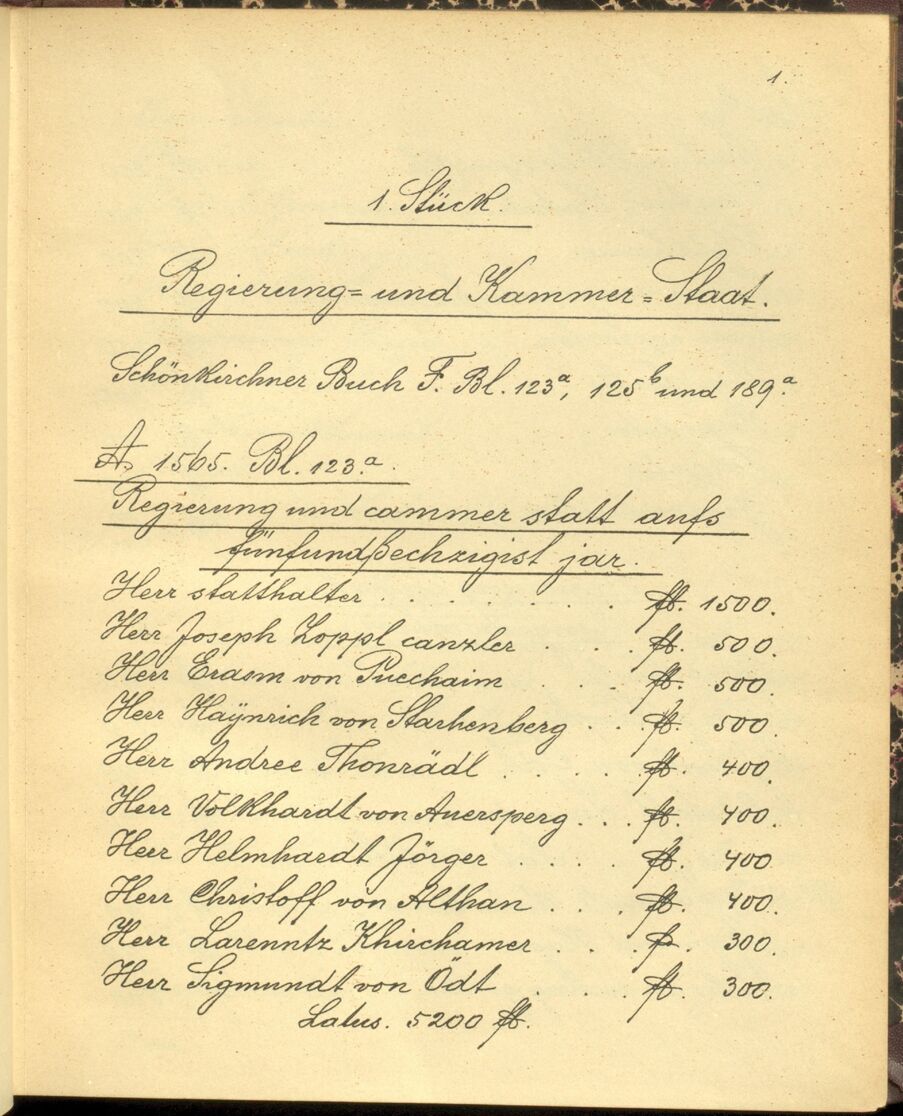 1.
1. Stück.
Regierung= und Kammer=Staat.
Schönkirchner Buch F. Bl. 123a, 125b und 189a.
A. 1565. Bl. 123.a.
Regierung und cammer statt aufs
fünfundßechzigist jar.
Herr statthalter . . . . . . . ft. 1500.
Herr Joseph Zoppl canzler . . . ft. 500.
Herr Erasm von Puechaim . . . ft. 500.
Herr Haÿnrich von Starhenberg . . ft. 500.
Herr Andree Thonrädl . . . . ft. 400.
Herr Volkhardt von Auersperg . . . ft. 400.
Herr Helmhardt Jörger . . . . ft. 400
Herr Christoff von Althan . . . ft. 400.
Herr Larenntz Khirchamer . . . f. 300.
Herr Sigmundt von Ödt . . . ft. 300.
Latus. 5200 ft.